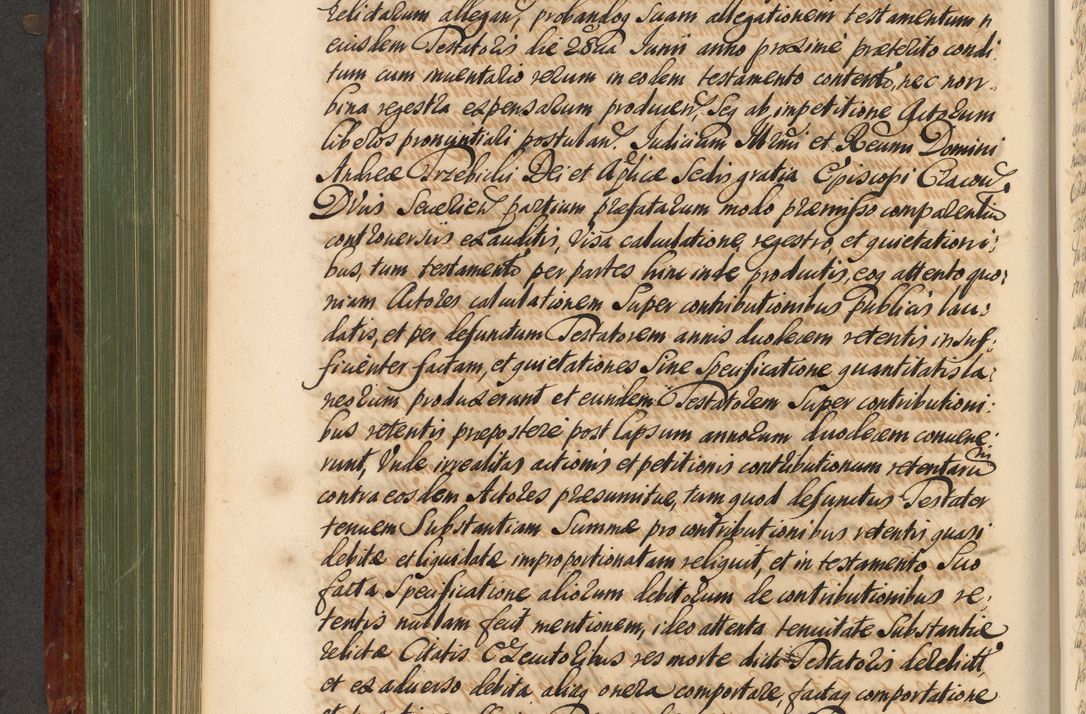 relictarum allegan, probandoq suam allegationem testamentum
eiusdem Testatoris die 28va Iunii anno proxime præterito condi:
tum cum inventario rerum in eodem testamento contento, nec non
bina regestra expensarum producen, seq ab impetitione Actorum
liberos pronuntiari postulan. Iudicium Illmi et Rеvmi Domini
Andreæ Trzebicki Dei et Aplicæ Sedis gratia Episcopi Cracovi
Ducis Severien partium præfatarum modo præmisso comparentiu
controversiis exauditis, visa calculatione, regestro, et quietationi:
bus, tum testamento per partes hinc inde productis, eoq attento quo:
niam Actores calculationem super contributionibus publicis lau:
datis, et per defunctum Testatorem annis duodecem retentis insuf:
ficienter factam, et quietationes sine specificatione quantitatis la:
neorum produxerunt et eundem Testatorem super contributioni:
bus retentis præpostere post lapsum annorum duodecem convene:
runt, Unde irrealitas actionis et petitionis contributionum retentarum
contra eosdem Actores præsumitur, tum quod defunctus Testator
tenuem substantiam summæ pro contributionibus retentis quasi
debitæ et liquidatæ improportionatam reliquit, et in testamento suo
facta specificatione aliorum debitorum de contributionibus re:
tentis nullam fecit mentionem, ideo attenta tenuitate substantiæ
relictæ Citatis Executoribus res morte dicti Testatoris derelict
et ex adverso debita aliaq onera comportare, factaq comportatione